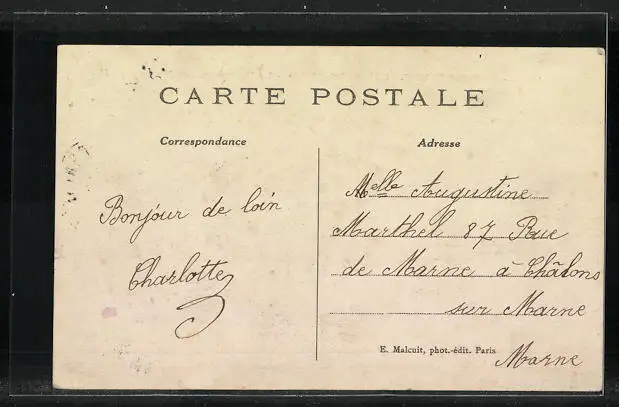 CARTE POSTALE
Correspondance
Adresse
Bonjour de loin
Charlotte
Melle Augustine
Marthel 87 Rue
de Marne à Châlons
sur Marne
E. Malcuit, phot.-édit. Paris
Marne